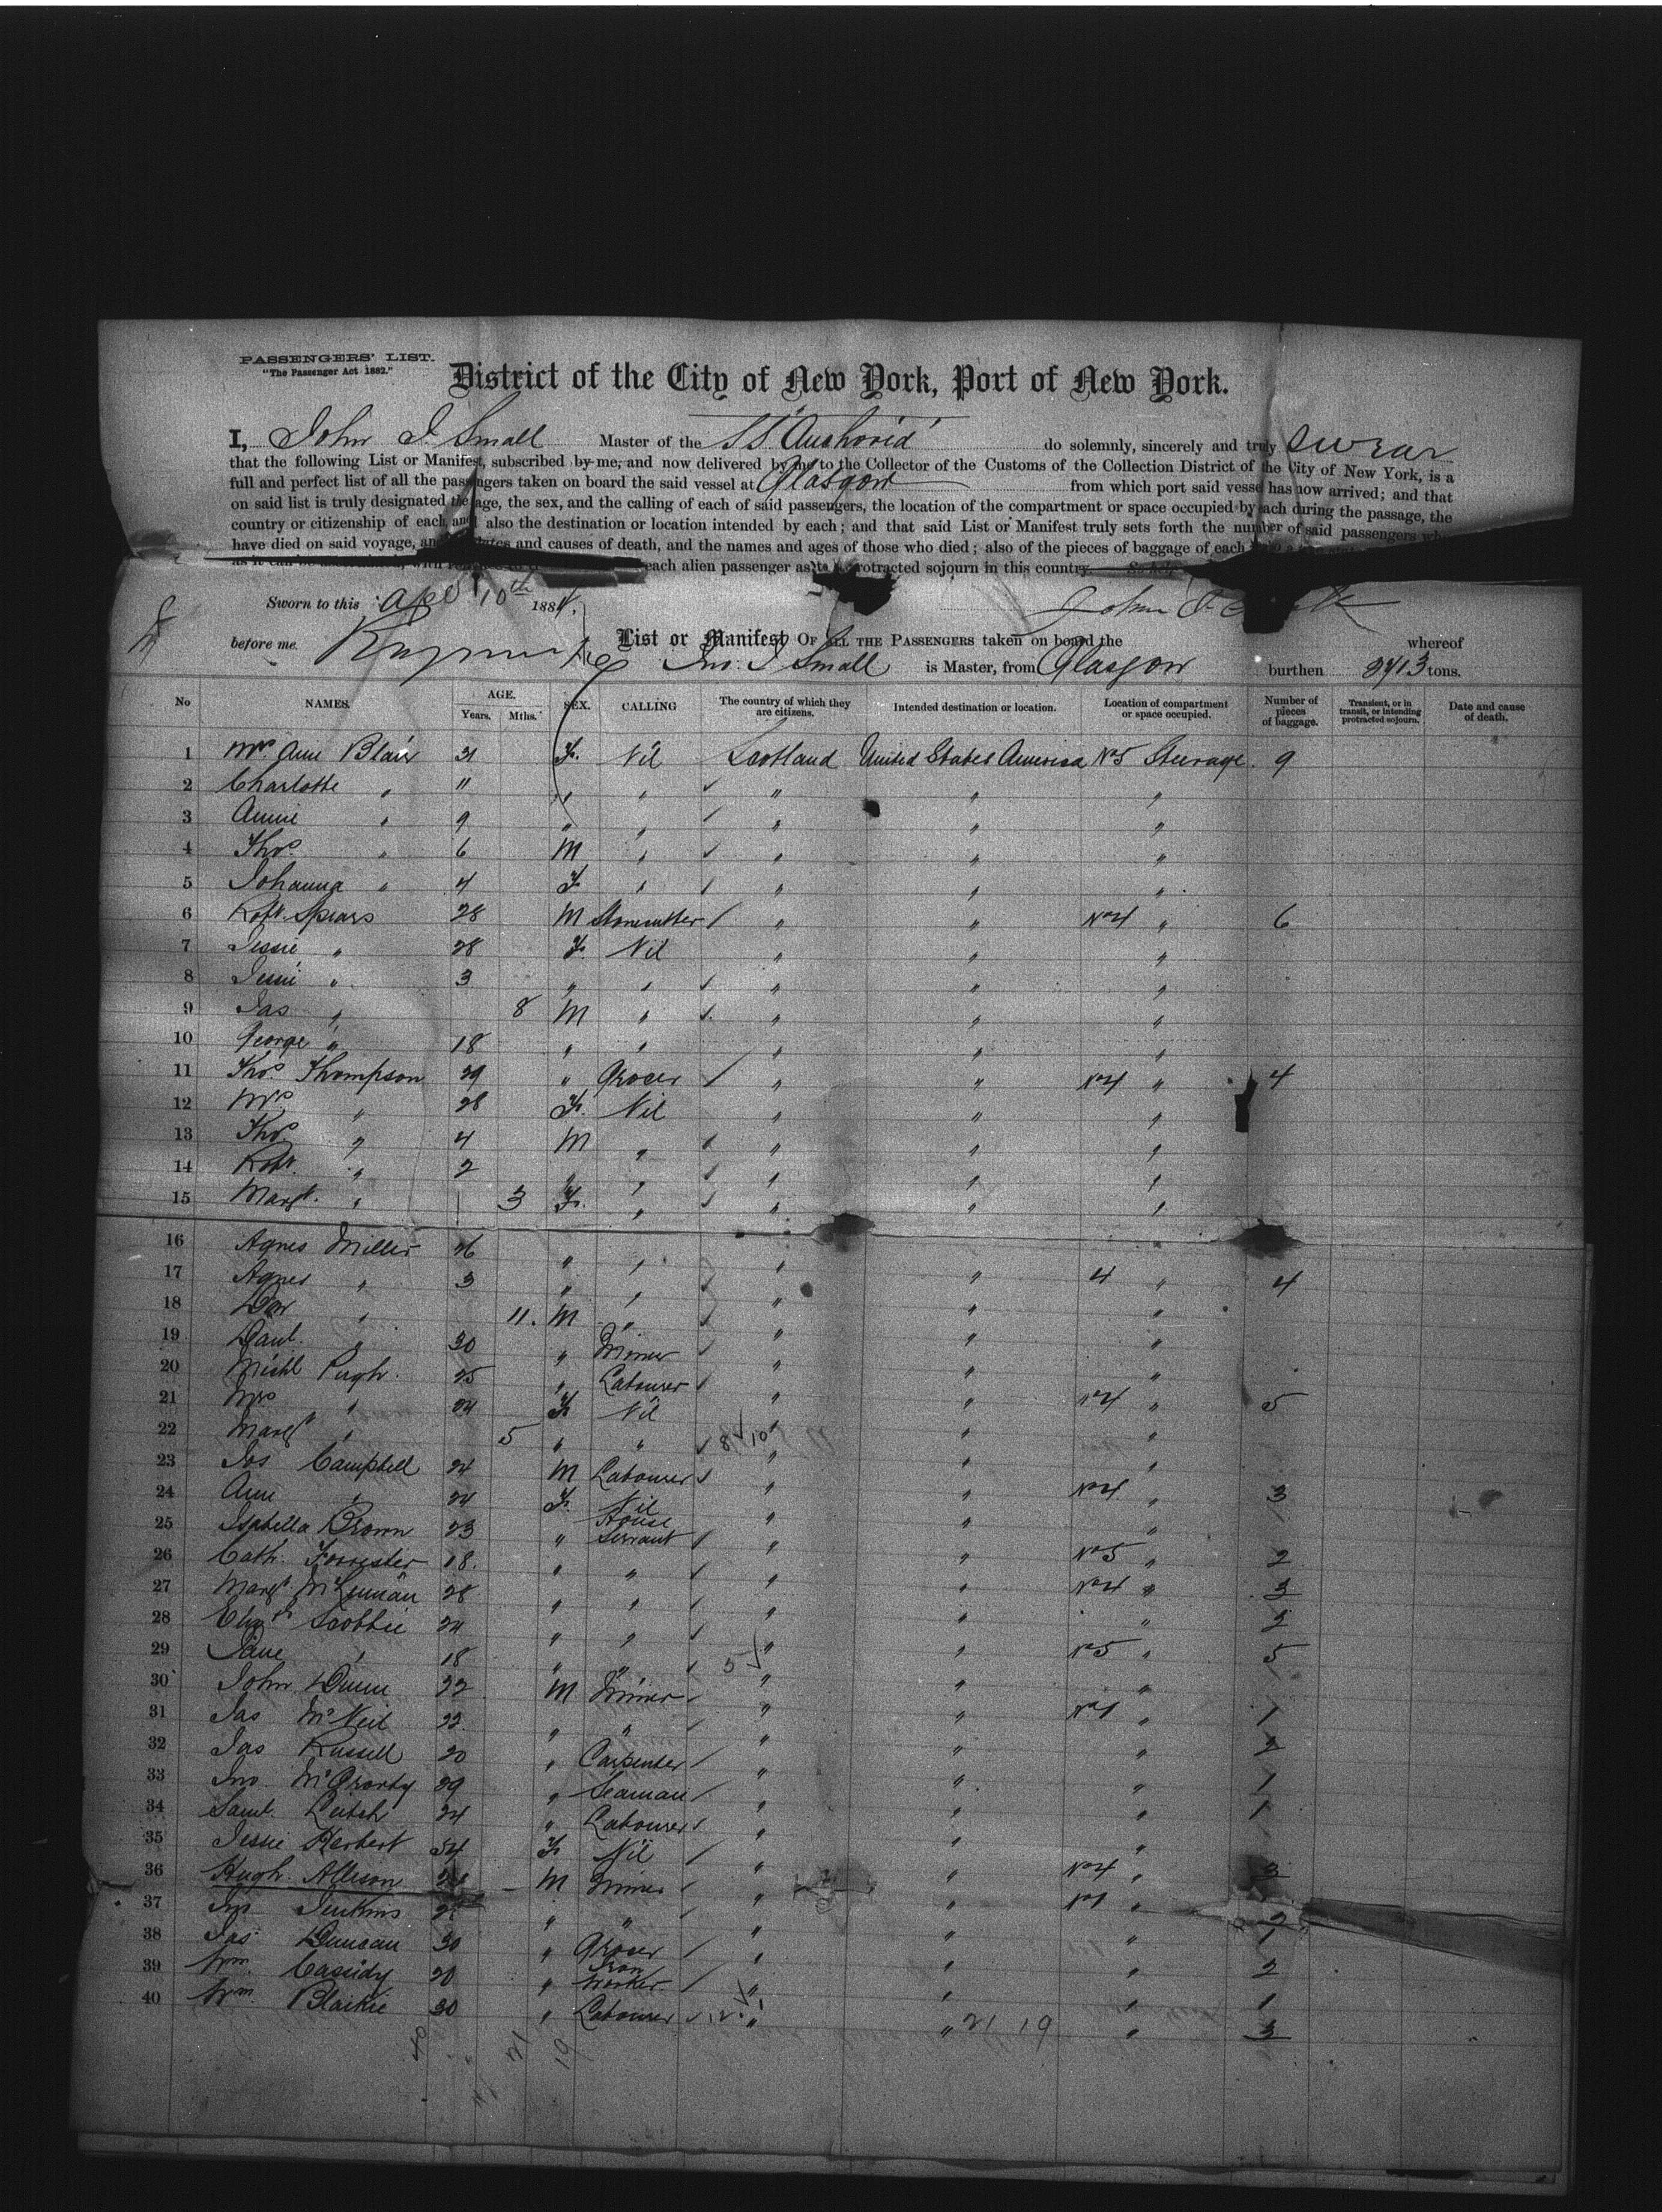 PASSENGERS' LIST.
"The Passenger Act 1882."
District of the City of New York, Port of New York.
I, John I. Small Master of the SS Anchoria do solemnly, sincerely and truly swear
that the following List or Manifest, subscribed by me, and now delivered by me to the Collector of the Customs of the Collection District of the City of New York, is a
full and perfect list of all the passengers taken on board the said vessel at Glasgow from which port said vessel has now arrived; and that
on said list is truly designated the age, the sex, and the calling of each of said passengers, the location of the compartment or space occupied by each during the passage, the
country or citizenship of each, and also the destination or location intended by each; and that said List or Manifest truly sets forth the number of said passengers who
have died on said voyage, and dates and causes of death, and the names and ages of those who died; also of the pieces of baggage of each
each alien passenger as to protracted sojourn in this country. So help
Sworn to this Apl 10th 1884,
before me
List or Manifest OF ALL THE PASSENGERS taken on board the whereof
Jno. I Small is Master, from Glasgow burthen 2713 tons.
No NAMES. AGE. Years. Mths. SEX. CALLING The country of which they are citizens. Intended destination or location. Location of compartment or space occupied. Number of pieces of baggage. Transient, or in transit, or intending protracted sojourn. Date and cause of death.
1 Mrs Ann Blair 31 F. Nil Scotland United States America No 5 Steerage. 9
2 Charlotte " 11 " " " " "
3 Annie " 9 " " " " "
4 Thos " 6 M " " " "
5 Johanna " 4 F " " " "
6 Robt. Spears 28 M Stonecutter " " No 4 " 6
7 Jessie " 28 F. Nil " " "
8 Jessie " 3 " " " " "
9 Jas " 8 M " " " "
10 George " 18 " " " " "
11 Thos Thompson 29 " Grocer " " No 4 " 4
12 Mrs " 28 F. Nil " " "
13 Thos " 4 M " " " "
14 Robt. " 2 " " " " "
15 Margt. " 3 F. " " " "
16 Agnes Miller 26 " " " " 4 " 4
17 Agnes " 3 " " " " "
18 " 11. M " " " "
19 Danl. " 30 " Miner " " "
20 Michl Pugh. 25 " Labourer " " No 4 " 5
21 Mrs " 24 F Nil " " "
22 Margt " 5 " " " " "
23 Jas Campbell 24 M Labourer " " No 4 " 3
24 Ann " 24 F. Nil " " "
25 Isabella Brown 23 " House Servant " " No 5 " 2
26 Cath. Forrester 18. " " " " No 4 " 3
27 Margt. McLennan 28 " " " " " 2
28 Elizth Scobbie 24 " " " " No 5 " 5
29 Jane " 18 " " " " "
30 John Dunn 22 M Miner " " No 1 " 1
31 Jas McNeil 22. " " " " " 2
32 Jas Russell 20 " Carpenter " " " 1
33 Jno. McGrorty 29 " Seaman " " " 1
34 Saml. Leitch 24 " Labourer " " "
35 Jessie Herbert 54 F. Nil " " No 4 " 3
36 Hugh Allison M Miner " " No 1 "
37 Jno. Jenkins " " " " " 1
38 Jas Duncan 30 " Grocer " " " 2
39 Wm. Cassidy 20 " Iron Worker " " " 1
40 Wm. Blaikie 30 " Labourer " " 21 19 " 3
40 21 19